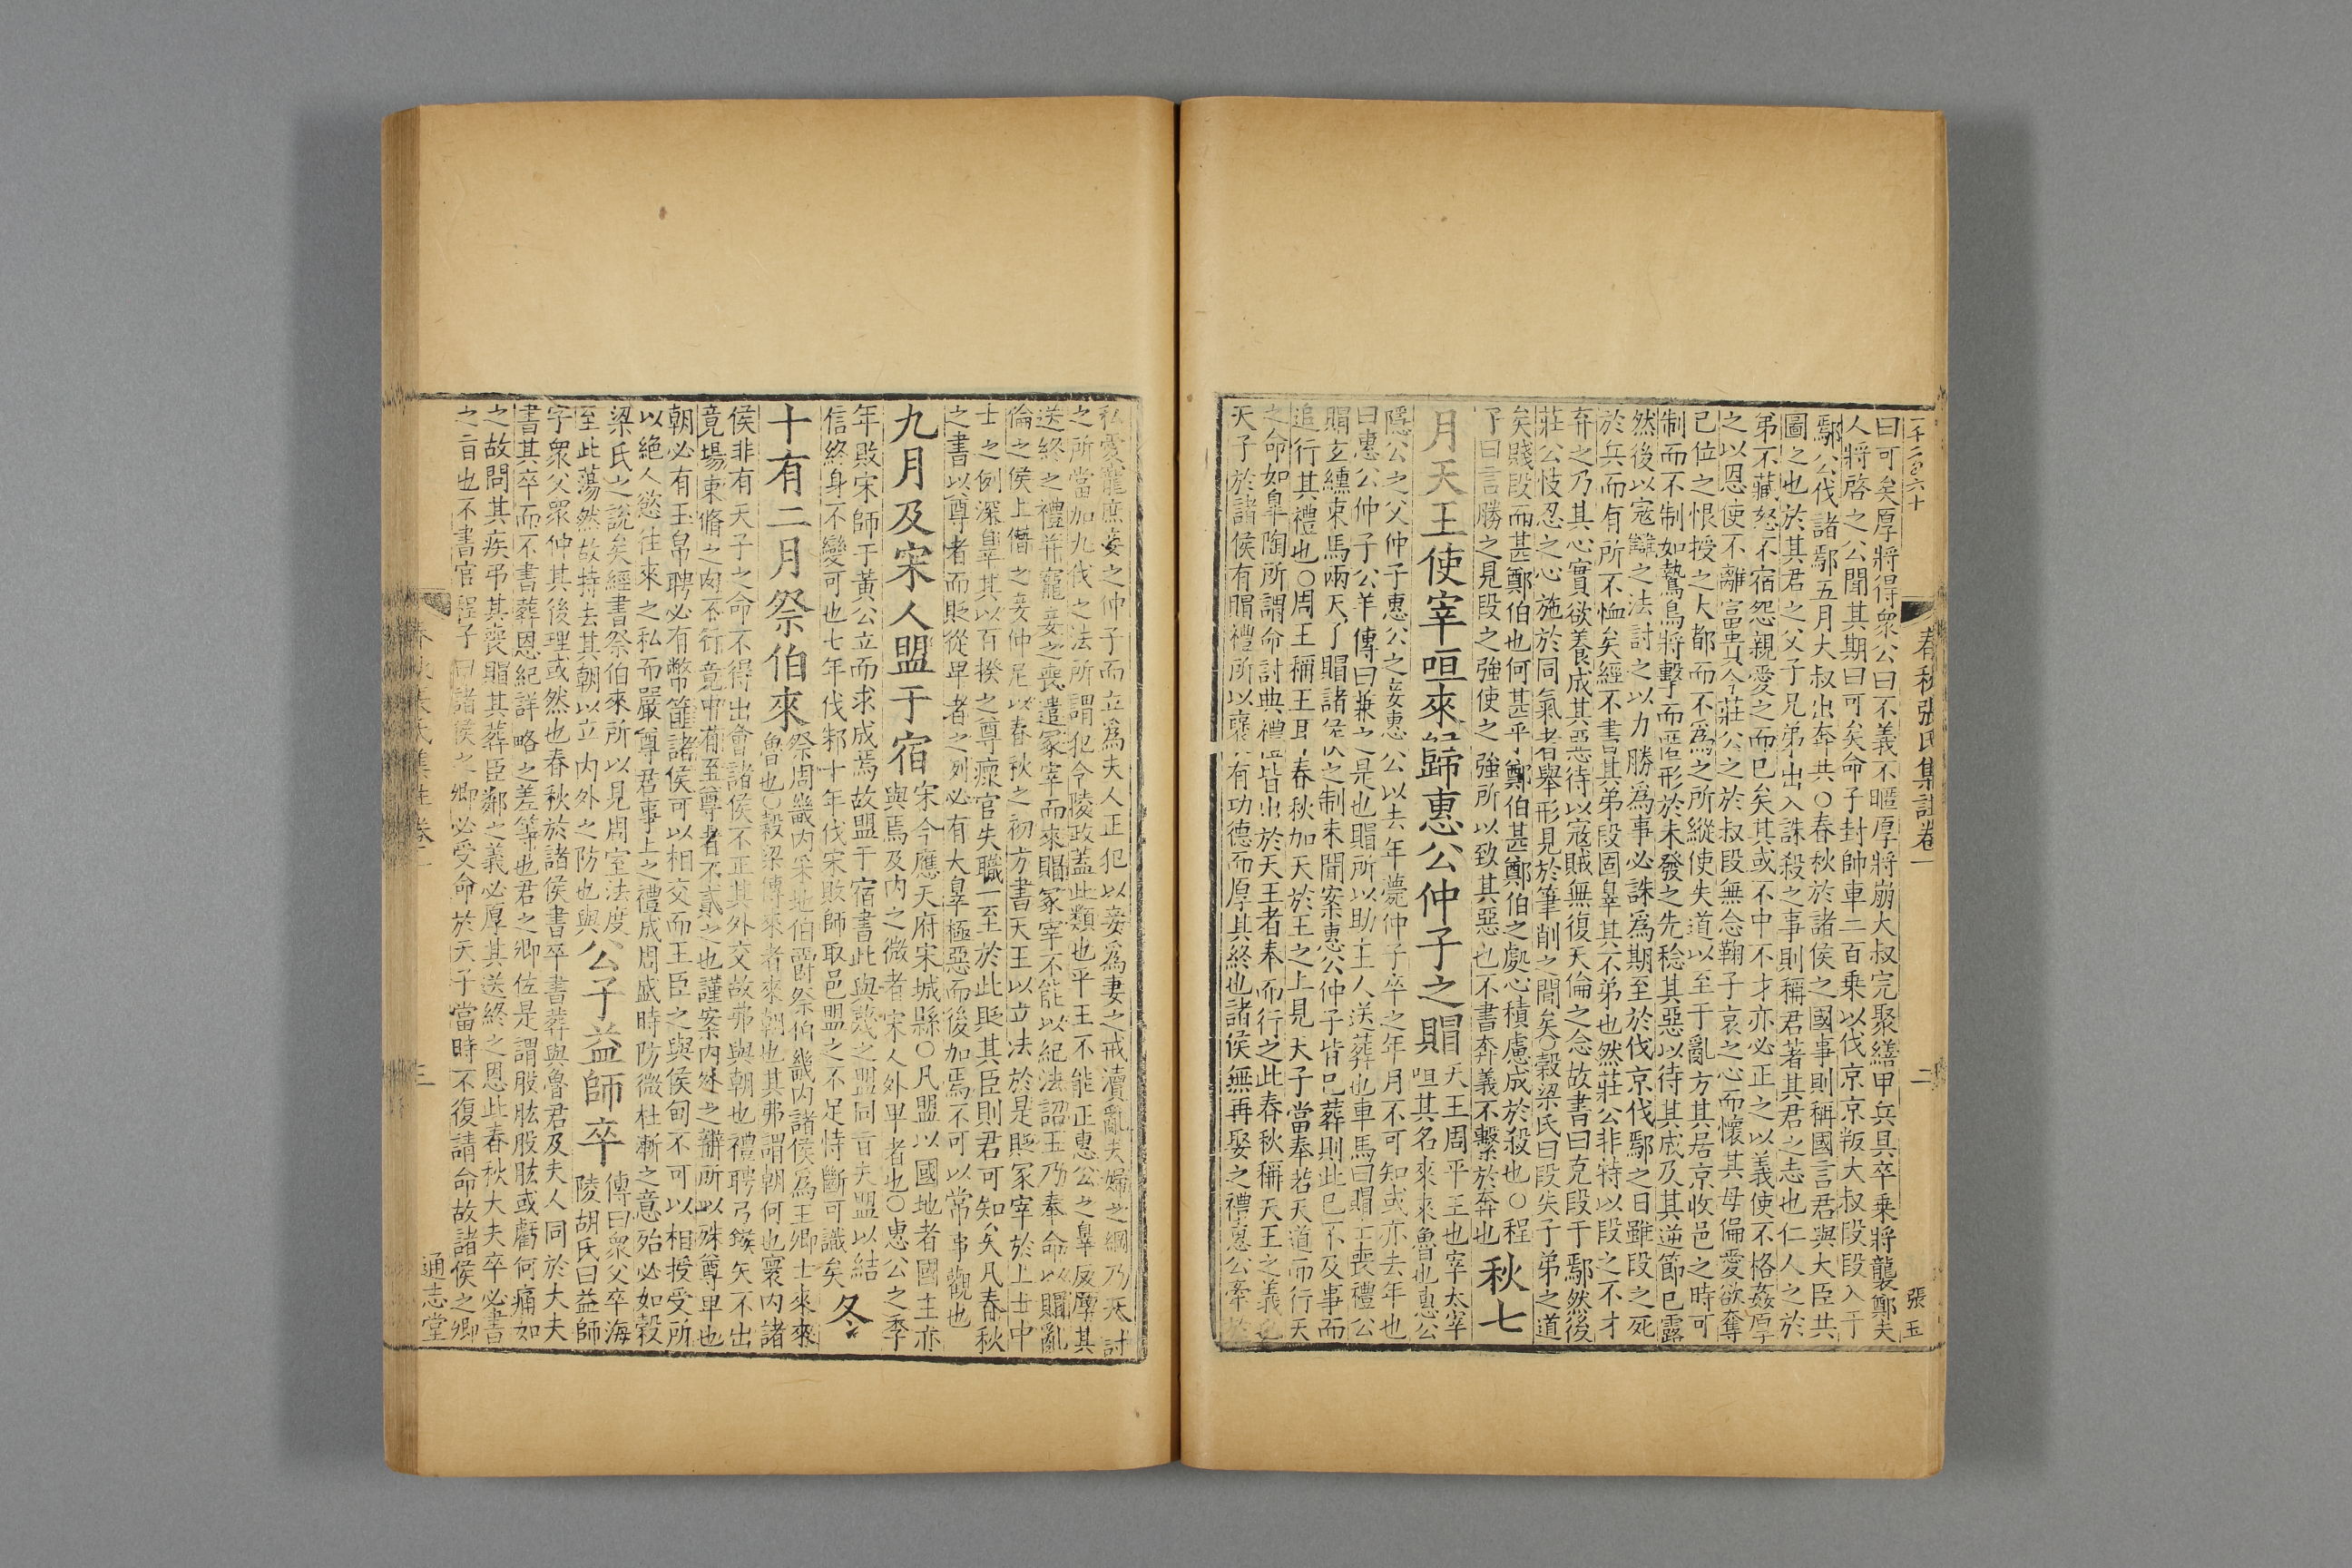 一千二百六十
春秋張氏集註卷一
二
張玉
曰可矣厚將得衆公曰不義不暱厚將崩大叔完聚繕甲兵具卒乗將襲鄭夫
人將啓之公聞其期曰可矣命子封帥車二百乗以伐京京叛大叔段段入于
鄢公伐諸鄢五月大叔出奔共○春秋於諸侯之國事則稱國言君與大臣共
圖之也於其君之父子兄弟出入誅殺之事則稱君著其君之志也仁人之於
弟不藏怒不宿怨親愛之而已矣其或不中不才亦必正之以義使不格姦厚
之以恩使不離富貴今莊公之於叔段無念鞠子哀之心而懷其母偏愛欲奪
已位之恨授之大都而不爲之所縱使失道以至于亂方其居京收邑之時可
制而不制如鷙鳥將擊而匿形於未發之先稔其惡以待其成及其逆節已露
然後以宼讎之法討之以力勝爲事必誅爲期至於伐京伐鄢之日雖段之死
於兵而有所不恤矣經不書其弟段固辠其不弟也然莊公非特以段之不才
弃之乃其心實欲養成其惡待以宼賊無復天倫之念故書曰克段于鄢然後
莊公忮忍之心施於同氣者舉形見於筆削之間矣○穀梁氏曰段失子弟之道
矣賤段而甚鄭伯也何甚乎鄭伯甚鄭伯之處心積慮成於殺也○程
子曰言勝之見段之強使之強所以致其惡也不書奔義不繫於奔也秋七
月天王使宰咺來歸惠公仲子之賵天王周平王也宰太宰
咺其名來來魯也惠公
隱公之父仲子惠公之妾惠公以去年薨仲子卒之年月不可知或亦去年也
曰惠公仲子公羊傳曰兼之是也賵所以助主人送葬也車馬曰賵士喪禮公
賵玄纁束馬兩天子賵諸侯之制未聞案惠公仲子皆已葬則此已不及事而
追行其禮也○周王稱王且春秋加天於王之上見天子當奉若天道而行天
之命如臯陶所謂命討典禮皆出於天王者奉而行之此春秋稱天王之義也
天子於諸侯有賵禮所以襃有功德而厚其終也諸侯無再娶之禮惠公牽於
私愛寵庶妾之仲子而立爲夫人正犯以妾爲妻之戒瀆亂夫婦之綱乃天討
之所當加九伐之法所謂犯令陵政蓋此類也平王不能正惠公之辠反厚其
送終之禮并寵妾之喪遣冢宰而來賵冢宰不能以紀法詔王乃奉命以賵亂
倫之侯上僭之妾仲尼以春秋之初方書天王以立法於是貶冢宰於上士中
士之例深辠其以百揆之尊瘝官失職一至於此貶其臣則君可知矣凡春秋
之書以尊者而貶從卑者之列必有大辠極惡而後加焉不可以常事觀也
九月及宋人盟于宿宋今應天府宋城縣○凡盟以國地者國主亦
與焉及内之微者宋人外卑者也○惠公之季
年敗宋師于黃公立而求成焉故盟于宿書此與蔑之盟同㫖夫盟以結
信終身不變可也七年伐邾十年伐宋敗師取邑盟之不足恃斷可識矣冬
十有二月祭伯來祭周畿内采地伯爵祭伯畿内諸侯爲王卿士來來
魯也○穀梁傳來者來朝也其弗謂朝何也寰内諸
侯非有天子之命不得出會諸侯不正其外交故弗與朝也禮聘弓鍭矢不出
竟場束脩之肉不行竟中有至尊者不貳之也謹案内外之辯所以殊尊卑也
朝必有玉帛聘必有幣篚諸侯可以相交而王臣之與侯甸不可以相授受所
以絶人慾往來之私而嚴尊君事上之禮成周盛時防微杜漸之意殆必如穀
梁氏之說矣經書祭伯來所以見周室法度
至此蕩然故特去其朝以立内外之防也與公子益師卒傳曰衆父卒海
陵胡氏曰益師
字衆父衆仲其後理或然也春秋於諸侯書卒書葬與魯君及夫人同於大夫
書其卒而不書葬恩紀詳略之差等也君之卿佐是謂股肱股肱或虧何痛如
之故問其疾弔其喪賵其葬臣鄰之義必厚其送終之恩此春秋大夫卒必書
之㫖也不書官程子曰諸侯之卿必受命於天子當時不復請命故諸侯之卿
春秋張氏集註卷一
三
通志堂